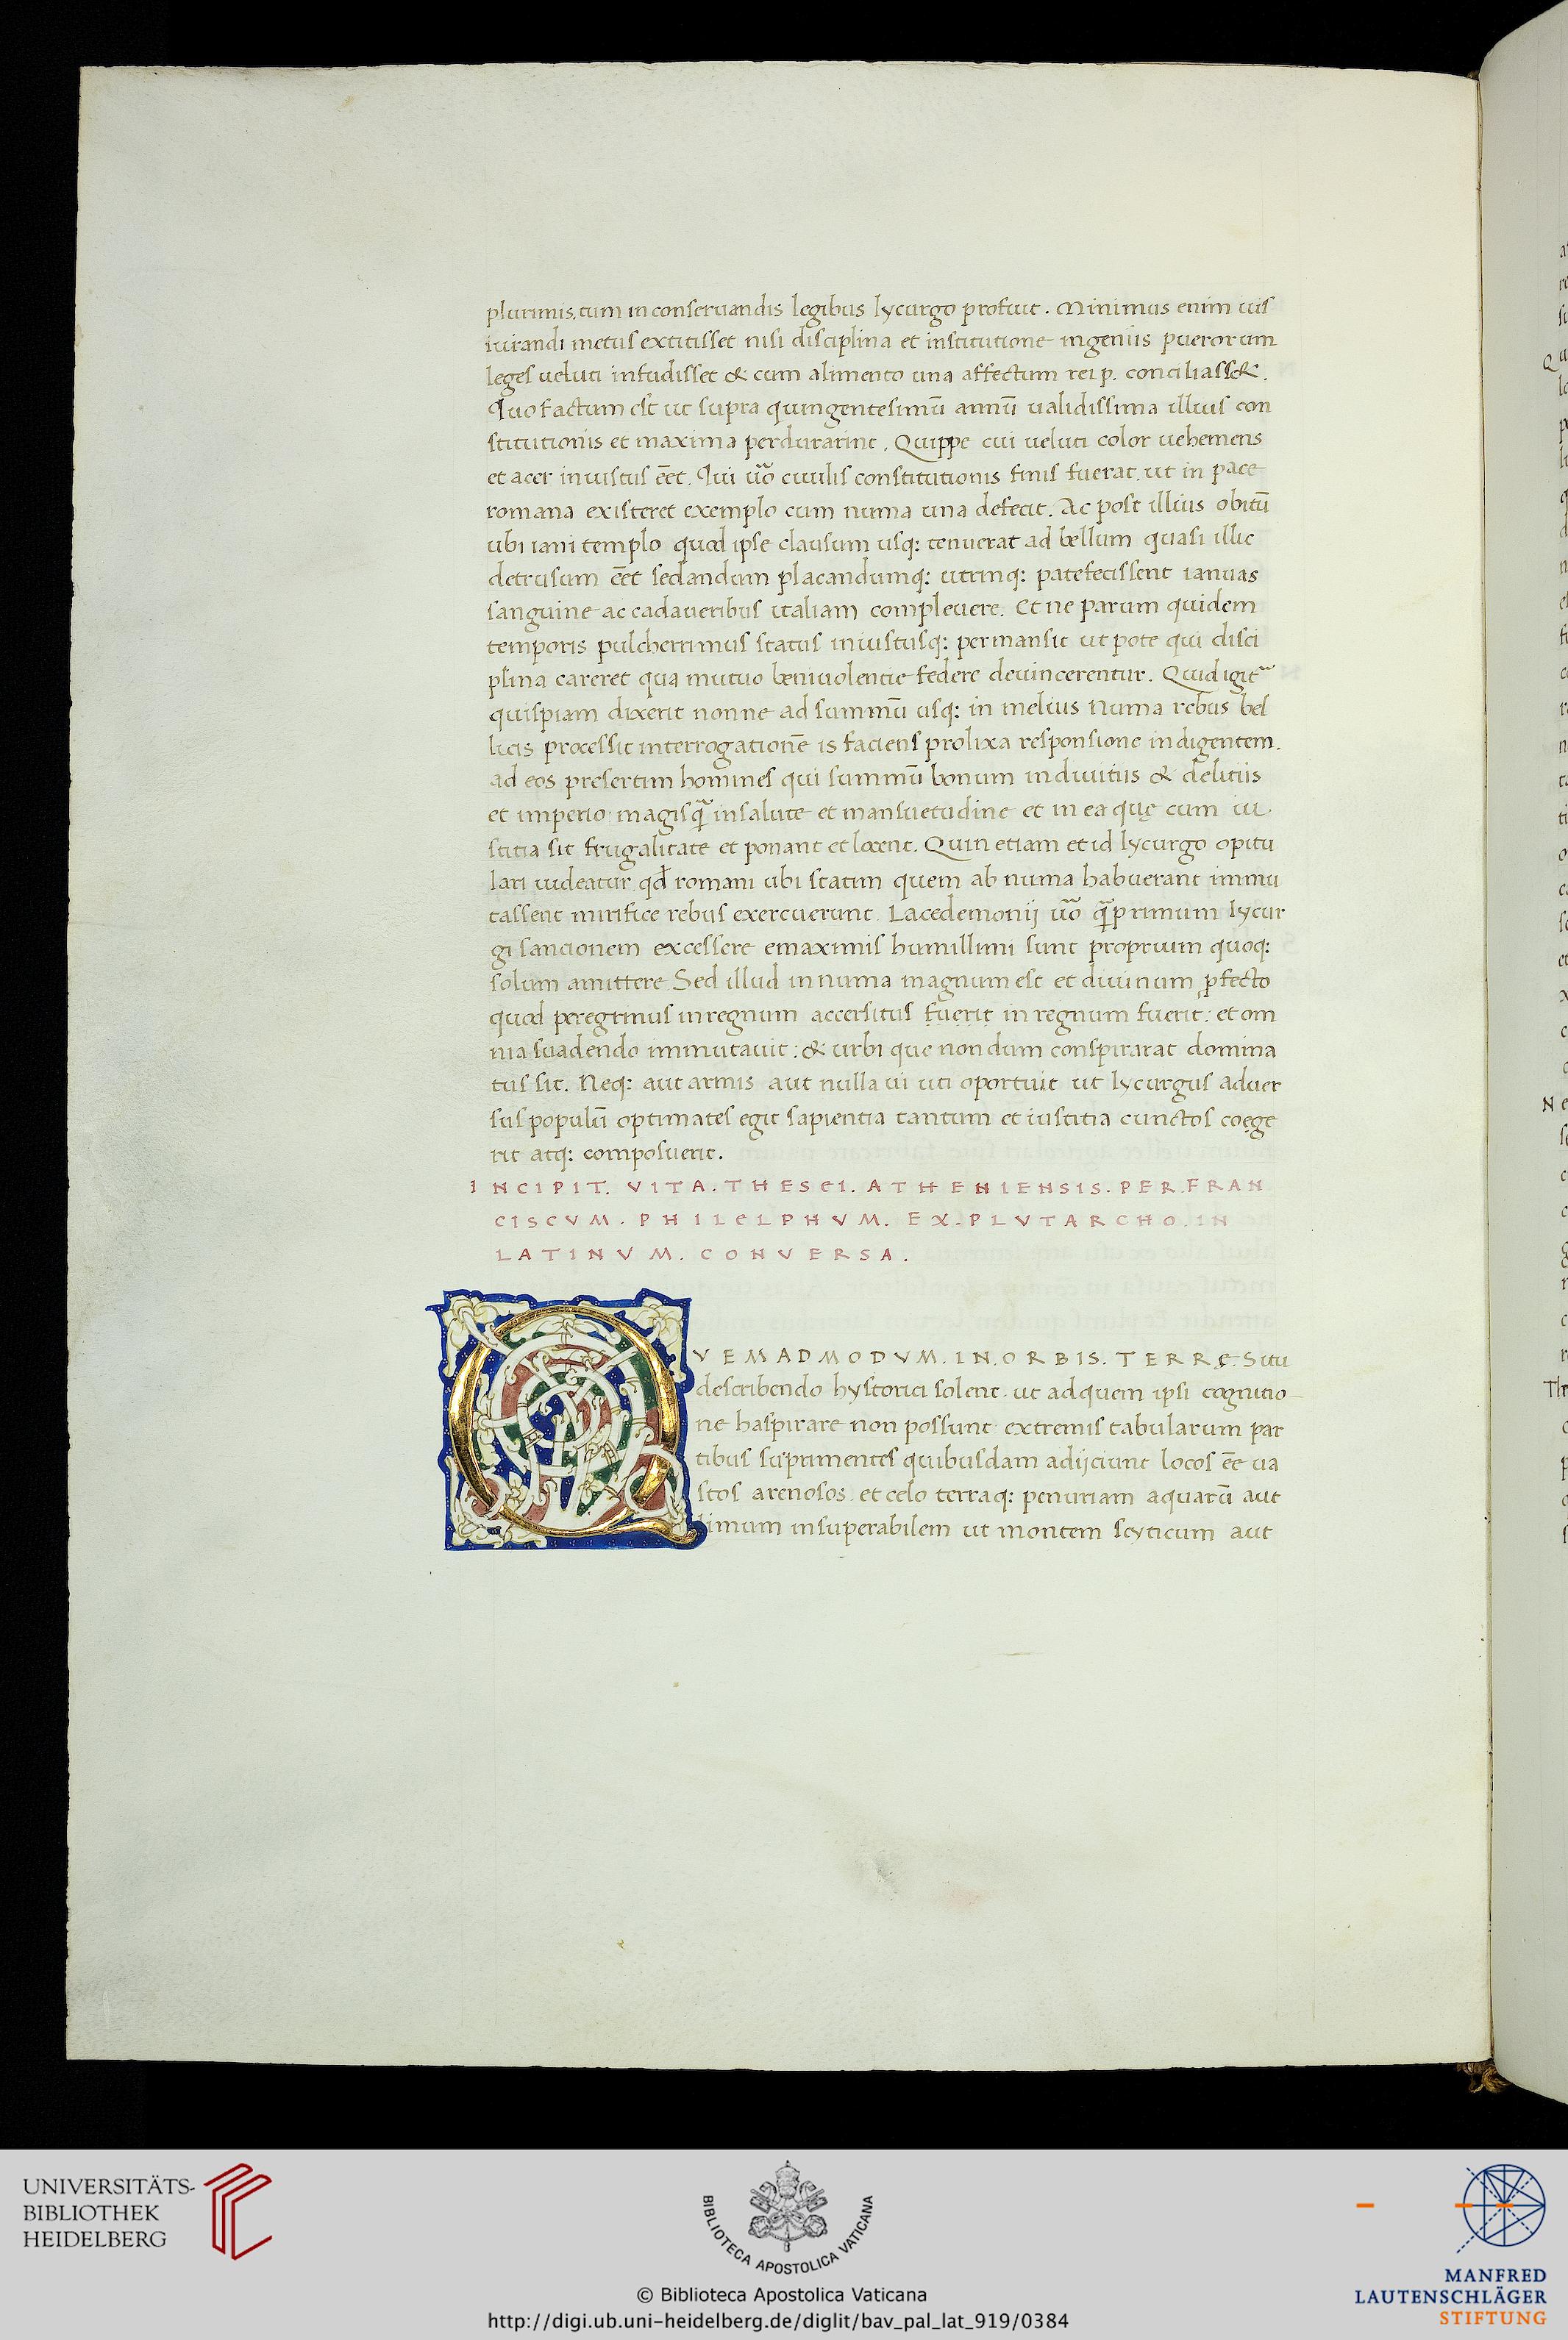 plurimis, tum in conseruandis legibus lycurgo profuit. Minimus enim iuis
iurandi metus extitisset nisi disciplina et institutione ingeniis puerorum
leges ueluti infudisset & cum alimento una affectum rei p. conciliass&.
Quo factum est ut supra quingentesimū annū ualidissima illius con
stitutionis et maxima perdurarint. Quippe cui ueluti color uehemens
et acer inuistus eēt. Qui uō ciuilis constitutionis finis fuerat. ut in pace
romana existeret exemplo cum numa una defecit. Ac post illius obitū
ubi iani templo quod ipse clausum usq: tenuerat ad bellum quasi illic
detrusum eēt sedandum placandumq: utrinq: patefecissent ianuas
sanguine ac cadaueribus italiam compleuere. Et ne parum quidem
temporis pulcherrimus status iniustusq: permansit ut pote qui disci
plina careret qua mutuo beniuolentie federe deuincerentur. Quid igit~
quispiam dixerit nonne ad summū usq: in melius Numa rebus bel
licis processit interrogationē is faciens prolixa responsione indigentem.
ad eos presertim homines qui summū bonum in diuitiis & delitiis
et imperio magisq̄ in salute et mansuetudine et in ea quę cum iu
stitia sit frugalitate et ponant et locent. Quin etiam et id lycurgo opitu
lari uideatur qd̄ romani ubi statim quem ab numa habuerant immu
tassent mirifice rebus exercuerunt. Lacedemonij uō q̄primum lycur
gi sancionem excessere e maximis humillimi sunt proprium quoq:
solum amittere Sed illud in numa magnum est et diuinum ꝓfecto
quod peregrinus in regnum accersitus fuerit in regnum fuerit: et om
nia suadendo immutauit: & urbi que nondum conspirarat domina
tus sit. Neq: aut armis aut nulla ui uti oportuit ut lycurgus aduer
sus populū optimates egit sapientia tantum et iustitia cunctos coęge
rit atq: composuerit.
INCIPIT. VITA. THESEI. ATHENIENSIS. PER. FRAN
CISCVM. PHILELPHVM. EX. PLVTARCHO. IN
LATINVM. CONVERSA.
QVEMADMODVM. IN. ORBIS. TERRĘ. Situ
describendo hystorici solent. ut ad quem ipsi cognitio
ne haspirare non possunt extremis tabularum par
tibus suprimentes quibusdam adijciunt locos eē ua
stos arenosos. et celo terraq: penuriam aquarū aut
limum insuperabilem ut montem scyticum aut
UNIVERSITÄTS-
BIBLIOTHEK
HEIDELBERG
BIBLIOTECA APOSTOLICA VATICANA
© Biblioteca Apostolica Vaticana
http://digi.ub.uni-heidelberg.de/diglit/bav_pal_lat_919/0384
MANFRED
LAUTENSCHLÄGER
STIFTUNG